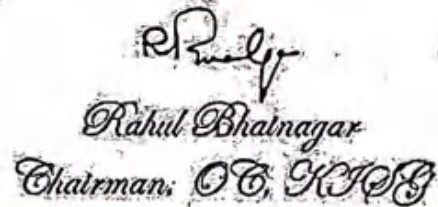 Rahul Bhatnagar
Chairman: OC, KISG